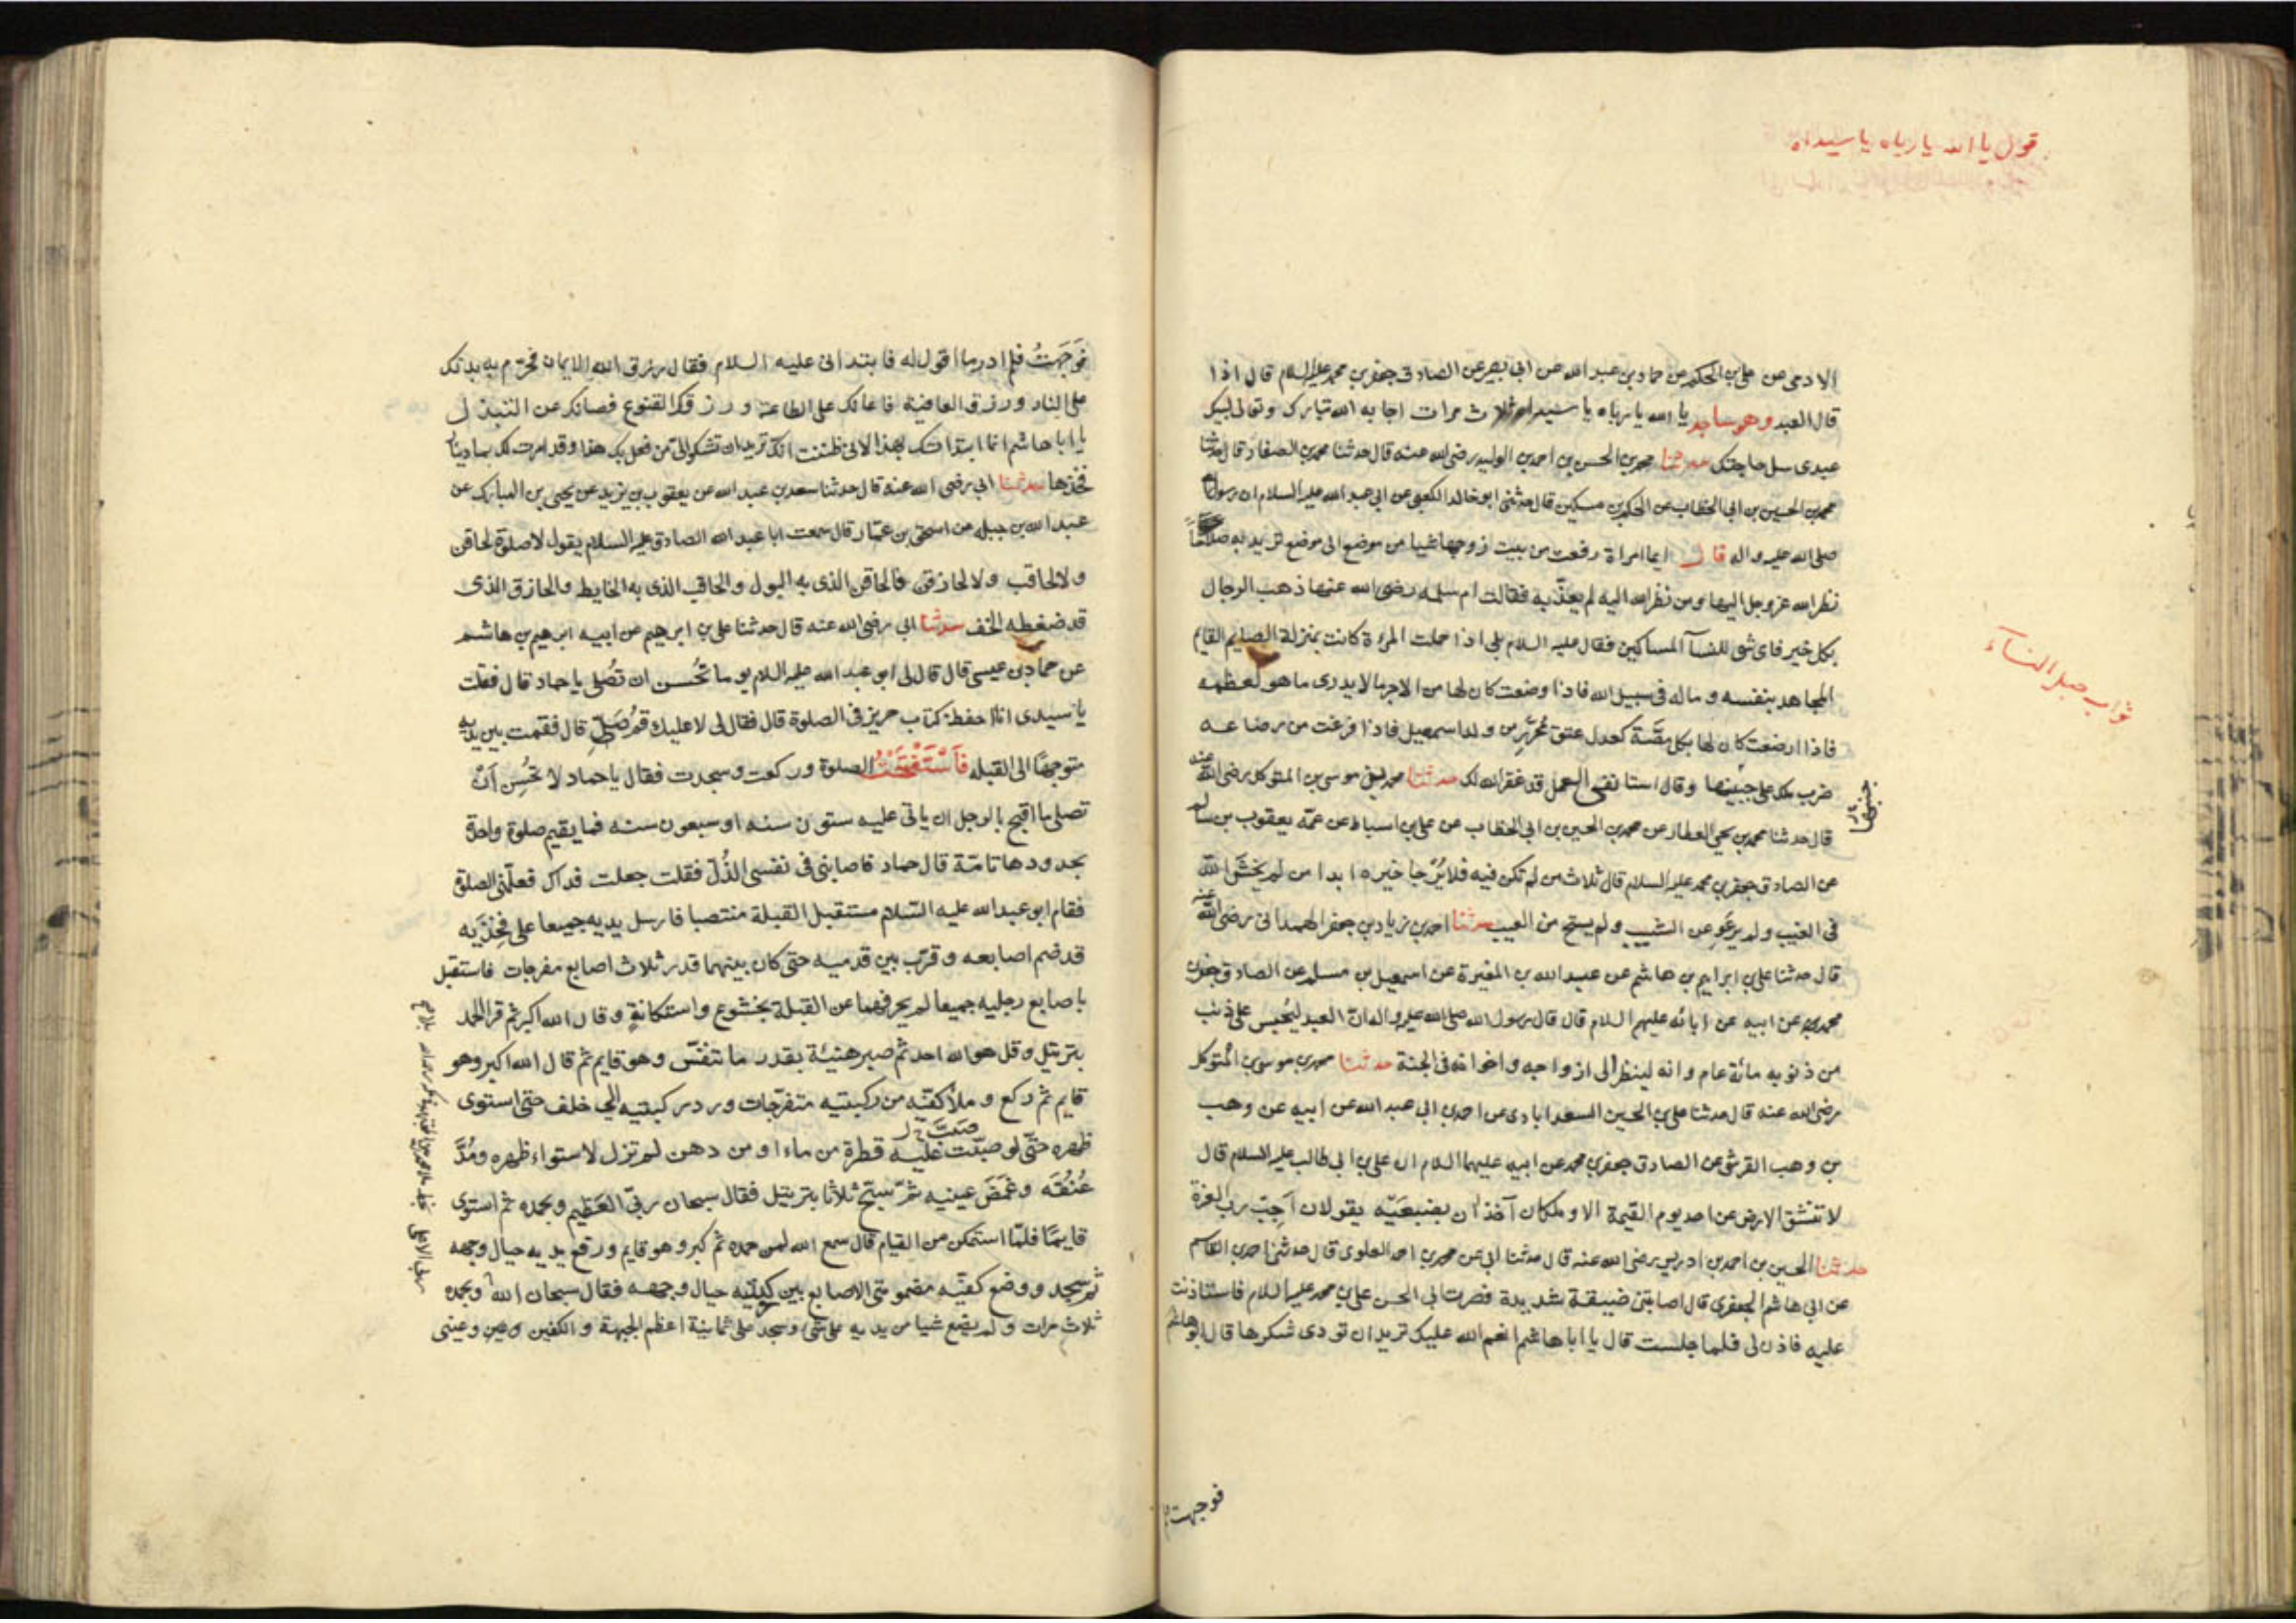 قول يا الله يا رباه يا سيداه
الادمى عن على بن الحكم عن حماد بن عبد الله عن ابى بصير عن الصادق جعفر بن محمد عليه السلام قال اذا
قال العبد وهو ساجد يا الله يا رباه يا سيداه ثلاث مرات اجابه الله تبارك وتعالى لبيك
عبدى سل حاجتك حدثنا محمد بن الحسن بن احمد بن الوليد رضى الله عنه قال حدثنا محمد بن الصفار قال حدثنا
محمد بن الحسين بن ابى الخطاب عن الحكم بن مسكين قال حدثنى ابو خالد الكعبى عن ابى عبد الله عليه السلام ان رسول الله
صلى الله عليه واله قال ايما امراة رفعت من بيت زوجها شيا من موضع الى موضع تريد به صلاحا
نظر الله عز وجل اليها ومن نظر الله اليه لم يعذّبه فقالت ام سلمه رضى الله عنها ذهب الرجال
بكل خير فاى شى للنسآ المساكين فقال عليه السلام بلى اذا حملت المرءة كانت بمنزلة الصايم القايم
المجاهد بنفسه و ماله فى سبيل الله فاذا وضعت كان لها من الاجر ما لا يدرى ما هو لعظمه
ثواب حبل النسآء
فاذا ارضعت كان لها بكل مصّة كعدل عتق محرّر من ولد اسمعيل فاذا فرغت من رضاعه
ضرب ملك على جبينها وقال استانفى العمل قد غفر الله لك حدثنا محمد بن موسى بن المتوكل رضى الله عنه
جنبها
قال حدثنا محمد بن يحيى العطار عن محمد بن الحسين بن ابى الخطاب عن على بن اسباط عن عمّه يعقوب بن سالم
عن الصادق جعفر بن محمد عليه السلام قال ثلاث من لم تكن فيه فلا يُرجا خيره ابدا من لم يخش الله
فى الغيب ولم يرعو عن الشيب ولم يستح من العيب حدثنا احمد بن زياد بن جعفر الهمدانى رضى الله عنه
قال حدثنا على بن ابراهيم بن هاشم عن عبد الله بن المغيرة عن اسمعيل بن مسلم عن الصادق جعفر بن
محمد عن ابيه عن ابائه عليهم السلام قال قال رسول الله صلى الله عليه واله انّ العبد ليُحبس على ذنب
من ذنوبه مائة عام وانه لينظر الى ازواجه واخوانه فى الجنة حدثنا محمد بن موسى بن المتوكل
رضى الله عنه قال حدثنا على بن الحسين السعدابادى عن احمد بن ابى عبد الله عن ابيه عن وهب
بن وهب القرشى عن الصادق جعفر بن محمد عن ابيه عليهما السلام ان على بن ابى طالب عليه السلام قال
لا تنشق الارض عن احد يوم القيمة الا وملكان آخذان بضبعيّه يقولان اَجِبْ رب العزة
حدثنا الحسين بن احمد بن ادريس رضى الله عنه قال حدثنا ابى عن محمد بن احمد العلوى قال حدثنى احمد بن القاسم
عن ابى هاشم الجعفرى قال اصابتنى ضيقة شديدة فصرت الى ابى الحسن على بن محمد عليه السلام فاستاذنت
عليه فاذن لى فلما جلست قال يا ابا هاشم اى نعم الله عليك تريد ان تودى شكرها قال ابو هاشم
فوجهت
فَوَجَهتُ فلم ادر ما اقول له فابتدانى عليه السلام فقال رزقك الله الايمان فحرّم به بدنك
على النار ورزقك العافية فاعانك على الطاعة ورزقك القنوع فصانك عن التبذل
يا ابا هاشم انما ابتداتك بهذا لانى ظننت انك تريد ان تشكو الىّ من فعل بك هذا وقد امرت لك بماة دينار
فخذها حدثنا ابى رضى الله عنه قال حدثنا سعد بن عبد الله عن يعقوب بن يزيد عن يحيى بن المبارك عن
عبد الله بن جبله عن اسحق بن عمّار قال سمعت ابا عبد الله الصادق عليه السلام يقول لا صلوة لحاقن
ولا لحاقب ولا لحازق فالحاقن الذى به البول والحاقب الذى به الغايط والحازق الذى
قد ضغطه الخف حدثنا ابى رضى الله عنه قال حدثنا على بن ابرهيم عن ابيه ابرهيم بن هاشم
عن حماد بن عيسى قال قال لى ابو عبد الله عليه السلام يوما تُحسن ان تُصلى يا حماد قال فقلت
يا سيدى انا احفظ كتاب حريز فى الصلوة قال فقال لى لا عليك قم صَلِّ قال فقمت بين يديه
متوجها الى القبله فَاسْتَفْتَحْتُ الصلوة وركعت وسجدت فقال يا حماد لا تُحسِن اَنْ
تصلى ما اقبح بالرجل ان ياتى عليه ستون سنه او سبعون سنه فما يقيم صلوة واحدة
بحدودها تامّة قال حماد فاصابنى فى نفسى الذُلّ فقلت جعلت فداك فعلّمنى الصلوة
فقام ابو عبد الله عليه السّلام مستقبل القبلة منتصبا فارسل يديه جميعا على فخِذَيه
قد ضم اصابعه وقرّب بين قدميه حتى كان بينهما قدر ثلاث اصابع مفرجات فاستقبل
باصابع رجليه جميعا لم يحرفهما عن القبلة بخشوع واستكانةٍ وقال الله اكبر ثم قرا الحمد
بترتيل وقل هو الله احد ثم صبر هنئية بقدر ما تنفّس وهو قايم ثم قال الله اكبر وهو
قايم ثم ركع وملأ كفّيه من ركبتيه متفرّجات ورد ركبتيه الى خلف حتى استوى
صَبَبَ خ ل
ظهره حتّى لو صبّت عليه قطرة من ماء او من دهن لم تزل لاستواء ظهره ومُدَّ
عُنُقَه وغَمَضَ عينيه ثمّ سبّح ثلاثا بترتيل فقال سبحان ربّى العَظيم وبحمده ثم استوى
قايمًا فلمّا استمكن من القيام قال سمع الله لمن حمده ثم كبر وهو قايم ورفع يديه حيال وجهه
ثم سجد ووضع كفيّه مضمومتى الاصابع بين ركبتيه حيال وجهه فقال سبحان الله وبحمده
ثلاث مرات ولم يضع شيا من يديه على شى وسجد على ثمانية اعظم الجبهة والكفين وعين وعينى